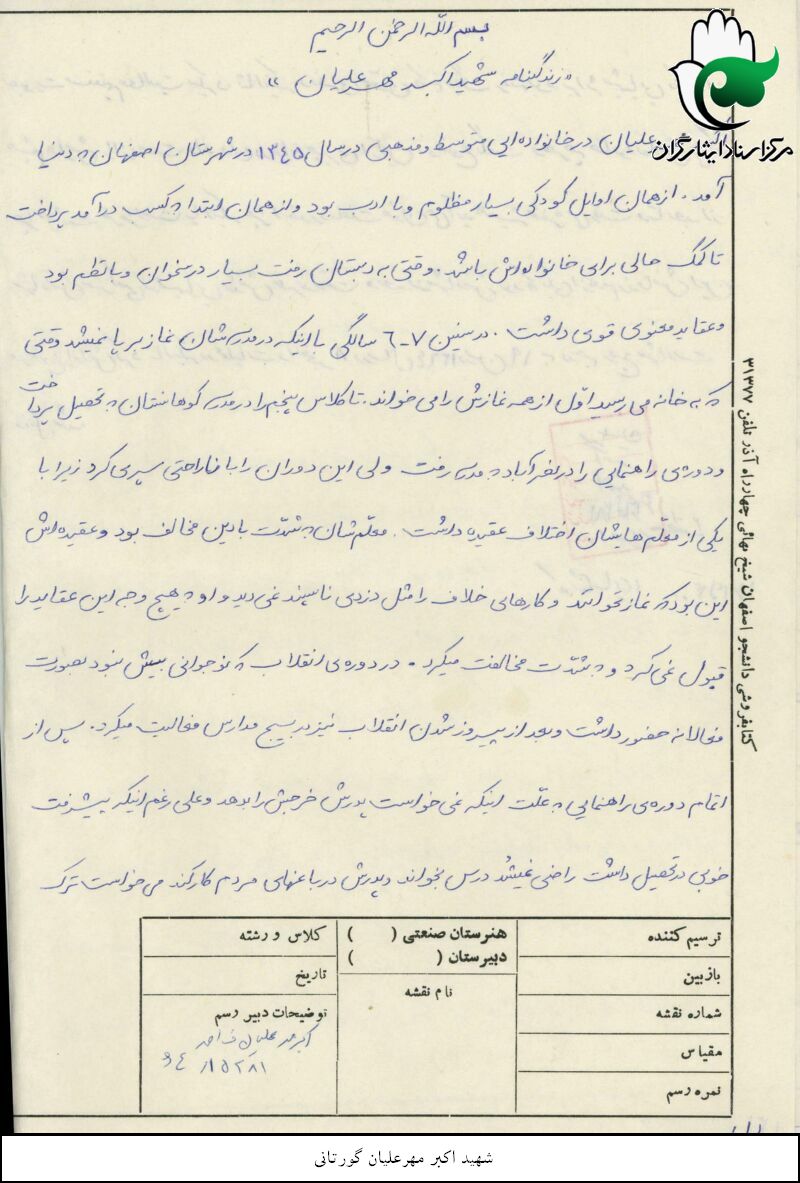 بسم الله الرحمن الرحیم
«زندگینامه شهید اکبر مهرعلیان»
مرکز اسناد ایثارگران
علیان در خانواده‌ایی متوسط و مذهبی در سال ۱۳۴۵ در شهرستان اصفهان به دنیا
آمد. از همان اوایل کودکی بسیار مظلوم و با ادب بود و از همان ابتدا به کسب درآمد پرداخت
تا کمک حالی برای خانواده‌اش باشد. وقتی به دبستان رفت بسیار درسخوان و با نظم بود
و عقاید معنوی قوی داشت. در سنین ۷-۶ سالگی با اینکه در مدرسه‌شان نماز برپا نمیشد وقتی
که به خانه می رسید اوّل از همه نمازش را می خواند. تا کلاس پنجم را در مدرسه کوهانستان به تحصیل پرداخت
و دوره‌ی راهنمایی را در نصرآباد به مدرسه رفت ولی این دوران را با ناراحتی سپری کرد زیرا با
یکی از معلّم هایشان اختلاف عقیده داشت. معلّم‌شان به شدّت با دین مخالف بود و عقیده‌اش
این بود که نماز نخوانند و کارهایی خلاف را مثل دزدی ناپسند نمی دید و او به هیچ وجه این عقاید را
قبول نمی کرد و به شدّت مخالفت میکرد. در دوره‌ی انقلاب که نوجوانی بیش نبود بصورت
فعالانه حضور داشت و بعد از پیروز شدن انقلاب نیز در بسیج مدارس فعالیت میکرد. پس از
اتمام دوره‌ی راهنمایی به علّت اینکه نمی خواست پدرش خرجش را بدهد و علی رغم اینکه پیشرفت
خوبی در تحصیل داشت راضی نمیشد درس بخواند و پدرش در باغهای مردم کار کند می خواست ترک
کتابفروشی دانشجو اصفهان شیخ بهائی چهارراه آذر تلفن ۳۱۳۷۷
ترسیم کننده
بازبین
شماره نقشه
مقیاس
نمره رسم
هنرستان صنعتی ( )
دبیرستان ( )
نام نقشه
کلاس و رشته
تاریخ
توضیحات دبیر رسم
شهید اکبر مهرعلیان گورتانی